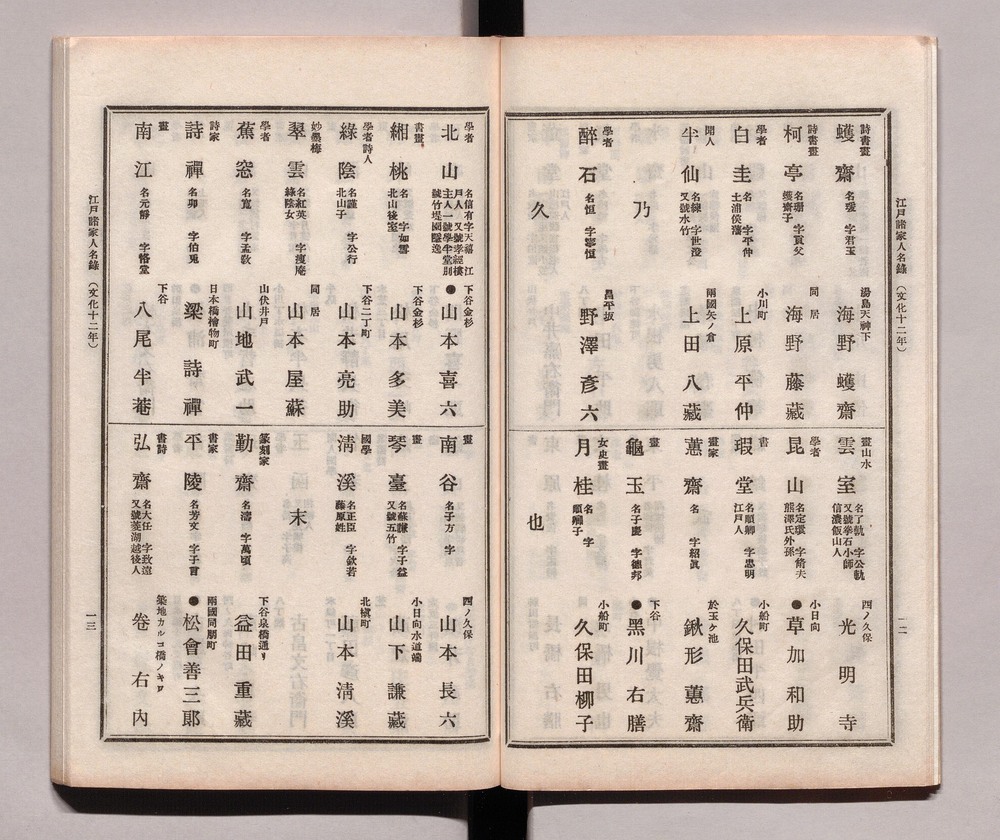 江戸諸家人名錄 (文化十二年)
詩書畫
蠖齋 名瑗 字君玉
湯島天神下
海野蠖齋
詩書畫
柯亭 名珊 字貢父
蠖齋子
同居
海野藤藏
學者
白圭 名 字平仲
土浦侯藩
小川町
上原平仲
聞人
半仙 名線 字世澄
又號水竹
兩國矢ノ倉
上田八藏
乃
學者
醉石 名恒 字寧恒
昌平坂
野澤彥六
久
畫山水
雲室 名了軌 字公軌
又號拳石小師
信濃飯山人
四ノ久保
光明寺
學者
昆山 名定環 字脩夫
熊澤氏外孫
小日向
●草加和助
書
瑕堂 名順卿 字忠明
江戸人
小船町
久保田武兵衛
畫家
蕙齋 名 字紹眞
於玉ケ池
鍬形蕙齋
畫
龜玉 名子慶 字德邦
下谷
●黑川右膳
女史畫
月桂 名 字
順卿子
小船町
久保田柳子
也
一二
學者
北山 名信有 字天禧 江
戸人 又號孝經樓
主人 一號學半堂別
號竹堤園隱逸
下谷金杉
●山本喜六
書畫
緗桃 名 字如雲
北山後室
下谷金杉
山本多美
學者詩人
綠陰 名謹 字公行
北山子
下谷二丁町
山本亮助
妙墨梅
翠雲 名紅英 字瘦庵
綠陰女
同居
山本屋蘇
學者
蕉窓 名寬 字孟敎
山伏井戸
山地武一
詩家
詩禪 名卯 字伯兎
日本橋檜物町
●梁詩禪
畫
南江 名元靜 字恪堂
下谷
八尾半菴
畫
南谷 名子方 字
四ノ久保
●山本長六
畫
琴臺 名蘇謙 字子益
又號五竹
小日向水道端
山下謙藏
國學
淸溪 名正臣 字欽若
藤原姓
北槇町
山本淸溪
末
篆刻家
勤齋 名濤 字萬頃
下谷泉橋通リ
益田重藏
書家
平陵 名芳文 字子言
兩國同朋町
●松會善三郞
書詩
弘齋 名大任 字致遠
又號菱湖越後人
築地カルコ橋ノキワ
卷右內
江戸諸家人名錄 (文化十二年)
一三